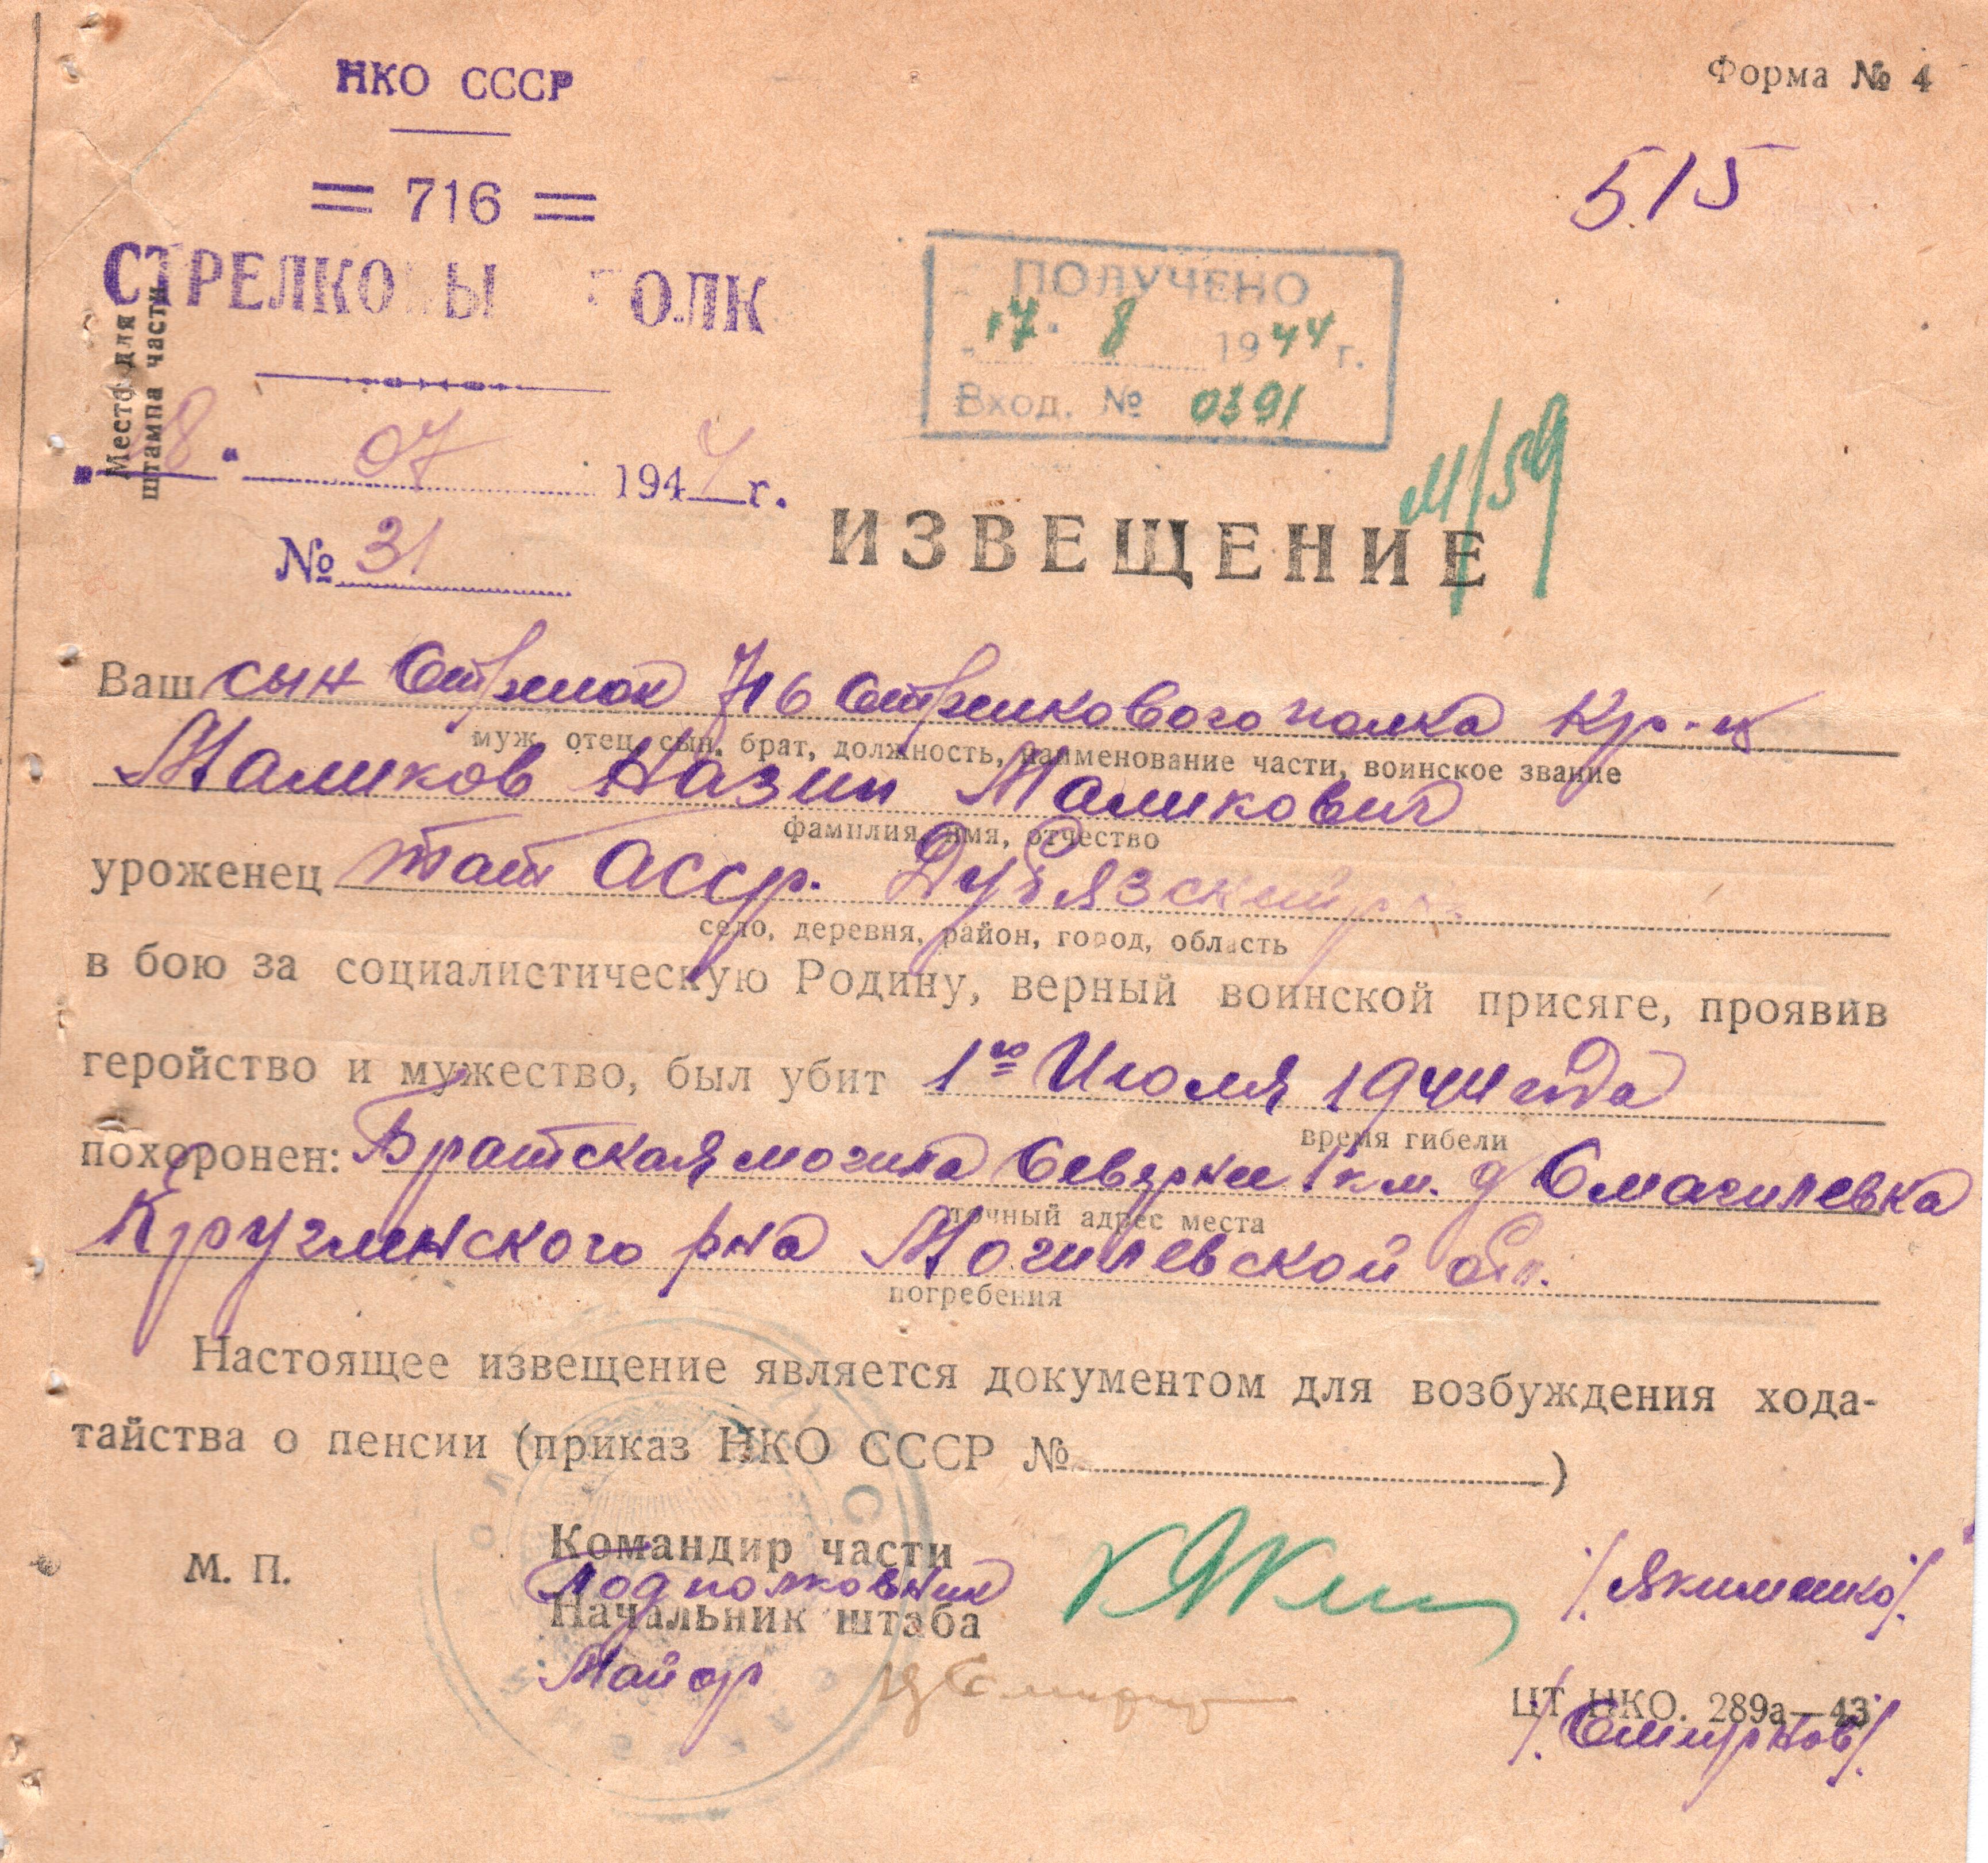 НКО СССР
Форма № 4
= 716 =
515
СТРЕЛКОВЫ ПОЛК
Место для
штампа части
ПОЛУЧЕНО
17. 8 1944 г.
Вход. № 0391
"18" 07 1944 г.
М/59
№ 31
ИЗВЕЩЕНИЕ
Ваш сын Стрелок 716 Стрелкового полка Кр-ц
муж, отец, сын, брат, должность, наименование части, воинское звание
Маликов Назип Маликович
фамилия, имя, отчество
уроженец Тат АССР. Дубязский рн
село, деревня, район, город, область
в бою за социалистическую Родину, верный воинской присяге, проявив
геройство и мужество, был убит 1го Июля 1944 года
время гибели
похоронен: Братская могила Севернее 1 км. д Смагилевка
точный адрес места
Круглянского рна Могилевской обл.
погребения
Настоящее извещение является документом для возбуждения хода-
тайства о пенсии (приказ НКО СССР № )
М. П.
Командир части
Подполковник /Якименко/
Начальник штаба
Майор
ЦТ НКО. 289а—43
/Смирнов/